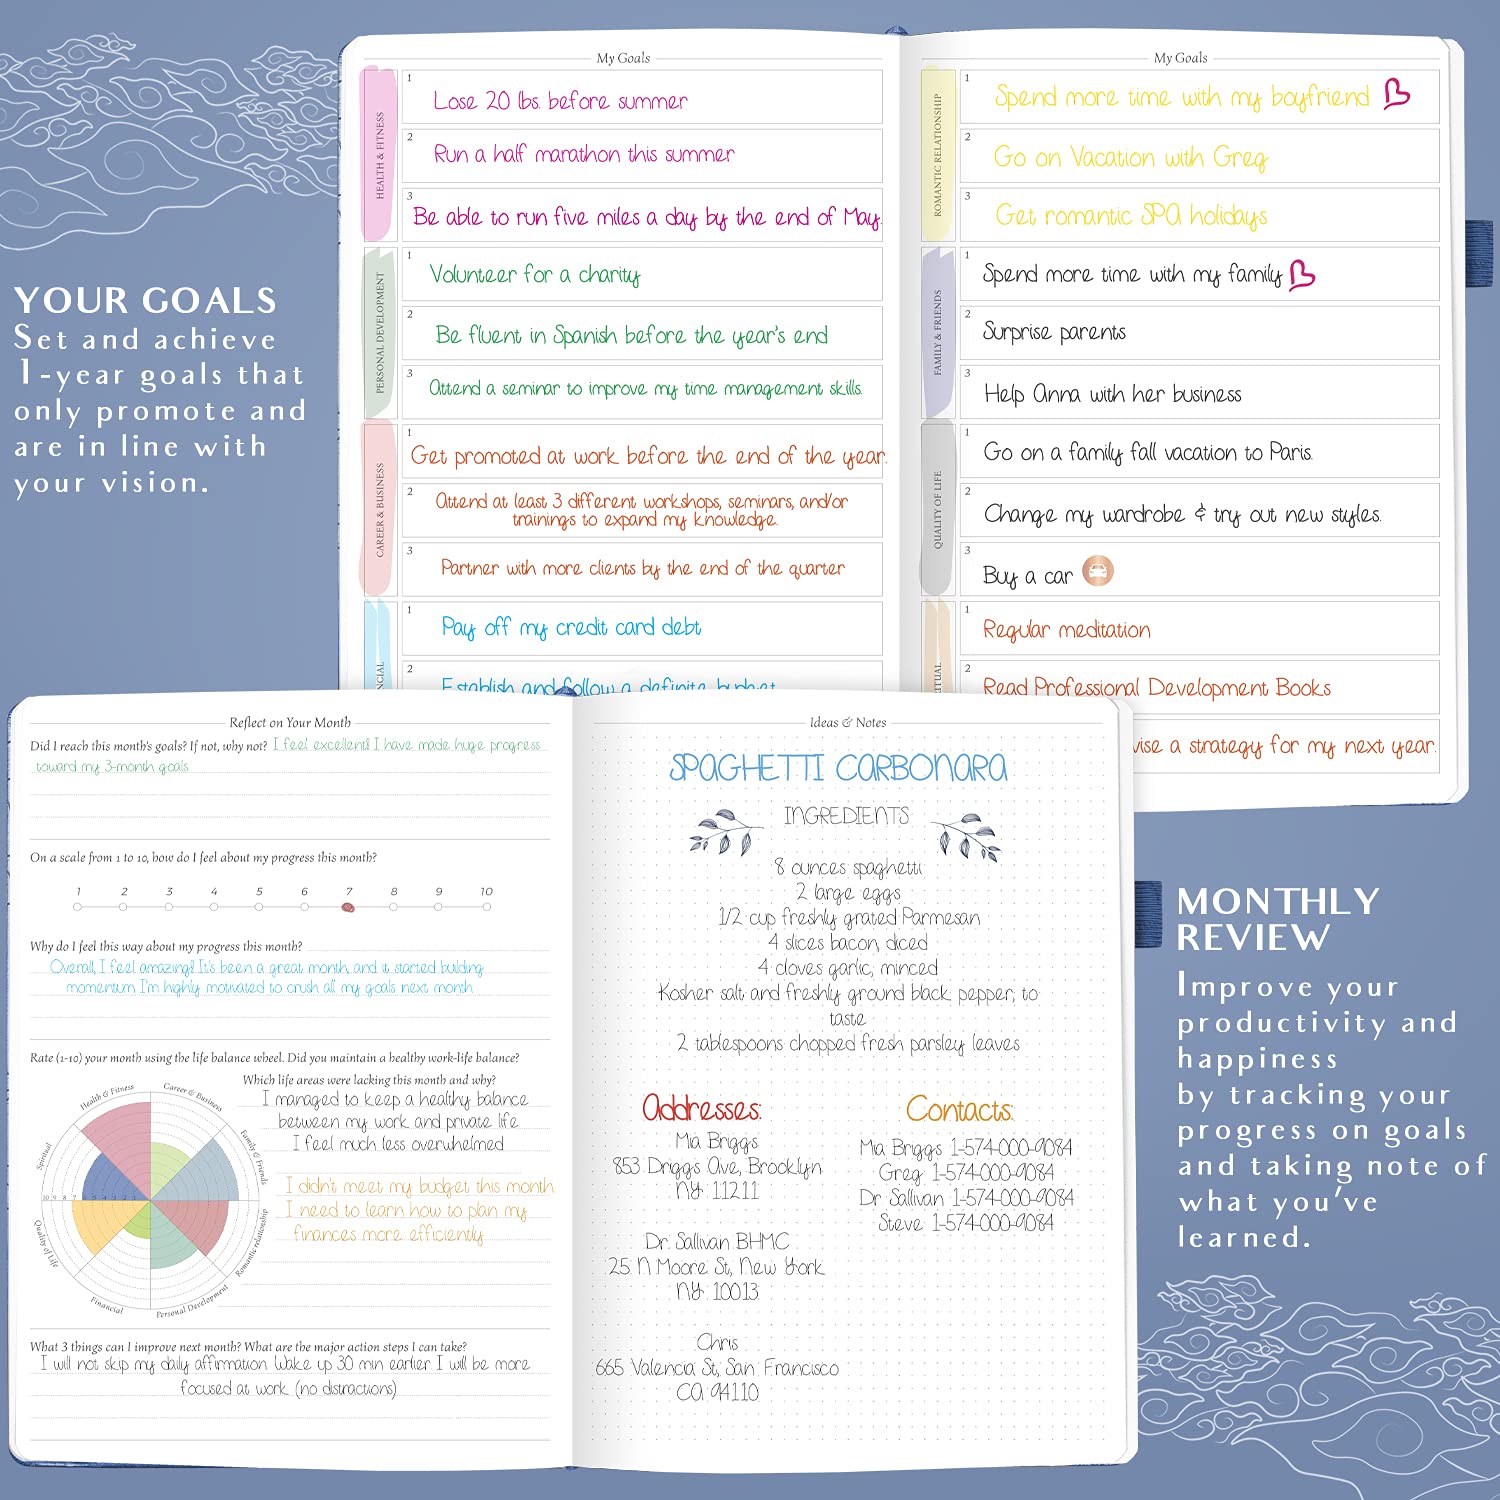 YOUR GOALS
Set and achieve
1-year goals that
only promote and
are in line with
your vision.
My Goals
HEALTH & FITNESS
1
Lose 20 lbs. before summer
2
Run a half marathon this summer
3
Be able to run five miles a day by the end of May.
PERSONAL DEVELOPMENT
1
Volunteer for a charity
2
Be fluent in Spanish before the year's end
3
Attend a seminar to improve my time management skills.
CAREER & BUSINESS
1
Get promoted at work before the end of the year.
2
Attend at least 3 different workshops, seminars, and/or
trainings to expand my knowledge.
3
Partner with more clients by the end of the quarter
NCIAL
1
Pay off my credit card debt
2
Establish and follow a definite budget
My Goals
ROMANTIC RELATIONSHIP
1
Spend more time with my boyfriend
2
Go on Vacation with Greg
3
Get romantic SPA holidays
FAMILY & FRIENDS
1
Spend more time with my family
2
Surprise parents
3
Help Anna with her business
QUALITY OF LIFE
1
Go on a family fall vacation to Paris.
2
Change my wardrobe & try out new styles.
3
Buy a car
RITUAL
1
Regular meditation
2
Read Professional Development Books
vise a strategy for my next year.
Reflect on Your Month
Did I reach this month's goals? If not, why not? I feel excellent! I have made huge progress
toward my 3-month goals
On a scale from 1 to 10, how do I feel about my progress this month?
1 2 3 4 5 6 7 8 9 10
Why do I feel this way about my progress this month?
Overall, I feel amazing! It's been a great month, and it started building
momentum. I'm highly motivated to crush all my goals next month
Rate (1-10) your month using the life balance wheel. Did you maintain a healthy work-life balance?
Health & Fitness
Career & Business
Family & Friends
Romantic relationship
Personal Development
Financial
Quality of Life
Spiritual
10 9 8 7 6 5 4 3 2 1
Which life areas were lacking this month and why?
I managed to keep a healthy balance
between my work and private life
I feel much less overwhelmed
I didn't meet my budget this month
I need to learn how to plan my
finances more efficiently
What 3 things can I improve next month? What are the major action steps I can take?
I will not skip my daily affirmation. Wake up 30 min earlier. I will be more
focused at work (no distractions)
Ideas & Notes
SPAGHETTI CARBONARA
INGREDIENTS
8 ounces spaghetti
2 large eggs
1/2 cup freshly grated Parmesan
4 slices bacon, diced
4 cloves garlic, minced
Kosher salt and freshly ground black pepper, to
taste
2 tablespoons chopped fresh parsley leaves
Addresses:
Mia Briggs
853 Driggs Ave, Brooklyn
NY 11211
Dr. Sallivan BHMC
25 N Moore St, New York
NY 10013
Chris
665 Valencia St, San Francisco
CA 94110
Contacts:
Mia Briggs 1-574-000-9084
Greg 1-574-000-9084
Dr Sallivan 1-574-000-9084
Steve 1-574-000-9084
MONTHLY
REVIEW
Improve your
productivity and
happiness
by tracking your
progress on goals
and taking note of
what you've
learned.